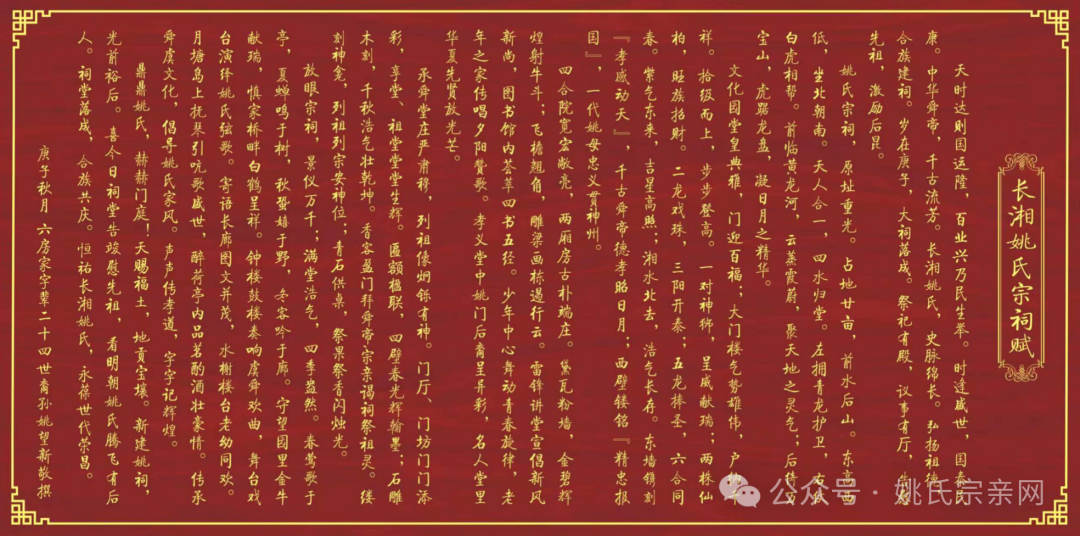 长湘姚氏宗祠赋
天时达则国运隆，百业兴乃民生举。时逢盛世，国泰民
康。中华舜帝，千古流芳。长湘姚氏，史脉绵长。弘扬祖德，
合族建祠。岁在庚子，大祠落成。祭祀有殿，议事有厅，告慰
先祖，激励后昆。
姚氏宗祠，原址重光。占地廿亩，前水后山。东高西
低，坐北朝南。天人合一，四水归堂。左拥青龙护卫，右
白虎相帮。前临黄龙河，云蒸霞蔚，聚天地之灵气；后
宝山，虎踞龙盘，凝日月之精华。
文化园堂皇典雅，门迎百福；大门楼气势雄伟，户纳千
祥。拾级而上，步步登高。一对神狮，呈威献瑞；两株仙
柏，旺族招财。二龙戏珠，三阳开泰；五龙捧圣，六合同
春。紫气东来，吉星高照；湘水北去，浩气长存。东墙镌刻
『孝感动天』，千古舜帝德孝昭日月；西壁镂铭『精忠报
国』，一代姚母忠义贯神州。
四合院宽宏敞亮，两厢房古朴端庄。黛瓦粉墙，金碧辉
煌射牛斗；飞檐翘角，雕梁画栋遏行云。雷锋讲堂宣倡新风
新尚，图书馆内荟萃四书五经。少年中心舞动青春旋律，老
年之家传唱夕阳赞歌。孝义堂中姚门后裔呈异彩，名人堂里
华夏先贤放光芒。
承舜堂庄严肃穆，列祖像炯铄有神。门厅、门坊门门添
彩，享堂、祖堂堂堂生辉。匾额楹联，四壁春光辉翰墨；石雕
木刻，千秋浩气壮乾坤。香客盈门拜舜帝，宗亲谒祠祭祖灵。缕
刻神龛，列祖列宗安神位；青石供桌，祭果祭香闪烛光。
放眼宗祠，景仪万千；满堂浩气，四季盎然。春莺歌于
亭，夏蝉鸣于树，秋蛩嬉于野，冬客吟于廊。守望园里金牛
献瑞，慎家桥畔白鹤呈祥。钟楼鼓楼奏响虞舜欢曲，舞台戏
台演绎姚氏弦歌。寄语长廊图文并茂，水榭楼台老幼同欢。
月塘岛上抚琴引吭歌盛世，醉荷亭内品茗酌酒壮豪情。传承
舜虞文化，倡导姚氏家风。声声传孝道，字字记辉煌。
鼎鼎姚氏，赫赫门庭！天赐福土，地贡宝壤。新建姚祠，
光前裕后。喜今日祠堂告竣慰先祖，看明朝姚氏腾飞有后
人。祠堂落成，合族共庆。恒祐长湘姚氏，永葆世代荣昌。
庚子秋月 六房家字辈二十四世裔孙姚望新敬撰
公众号·姚氏宗亲网